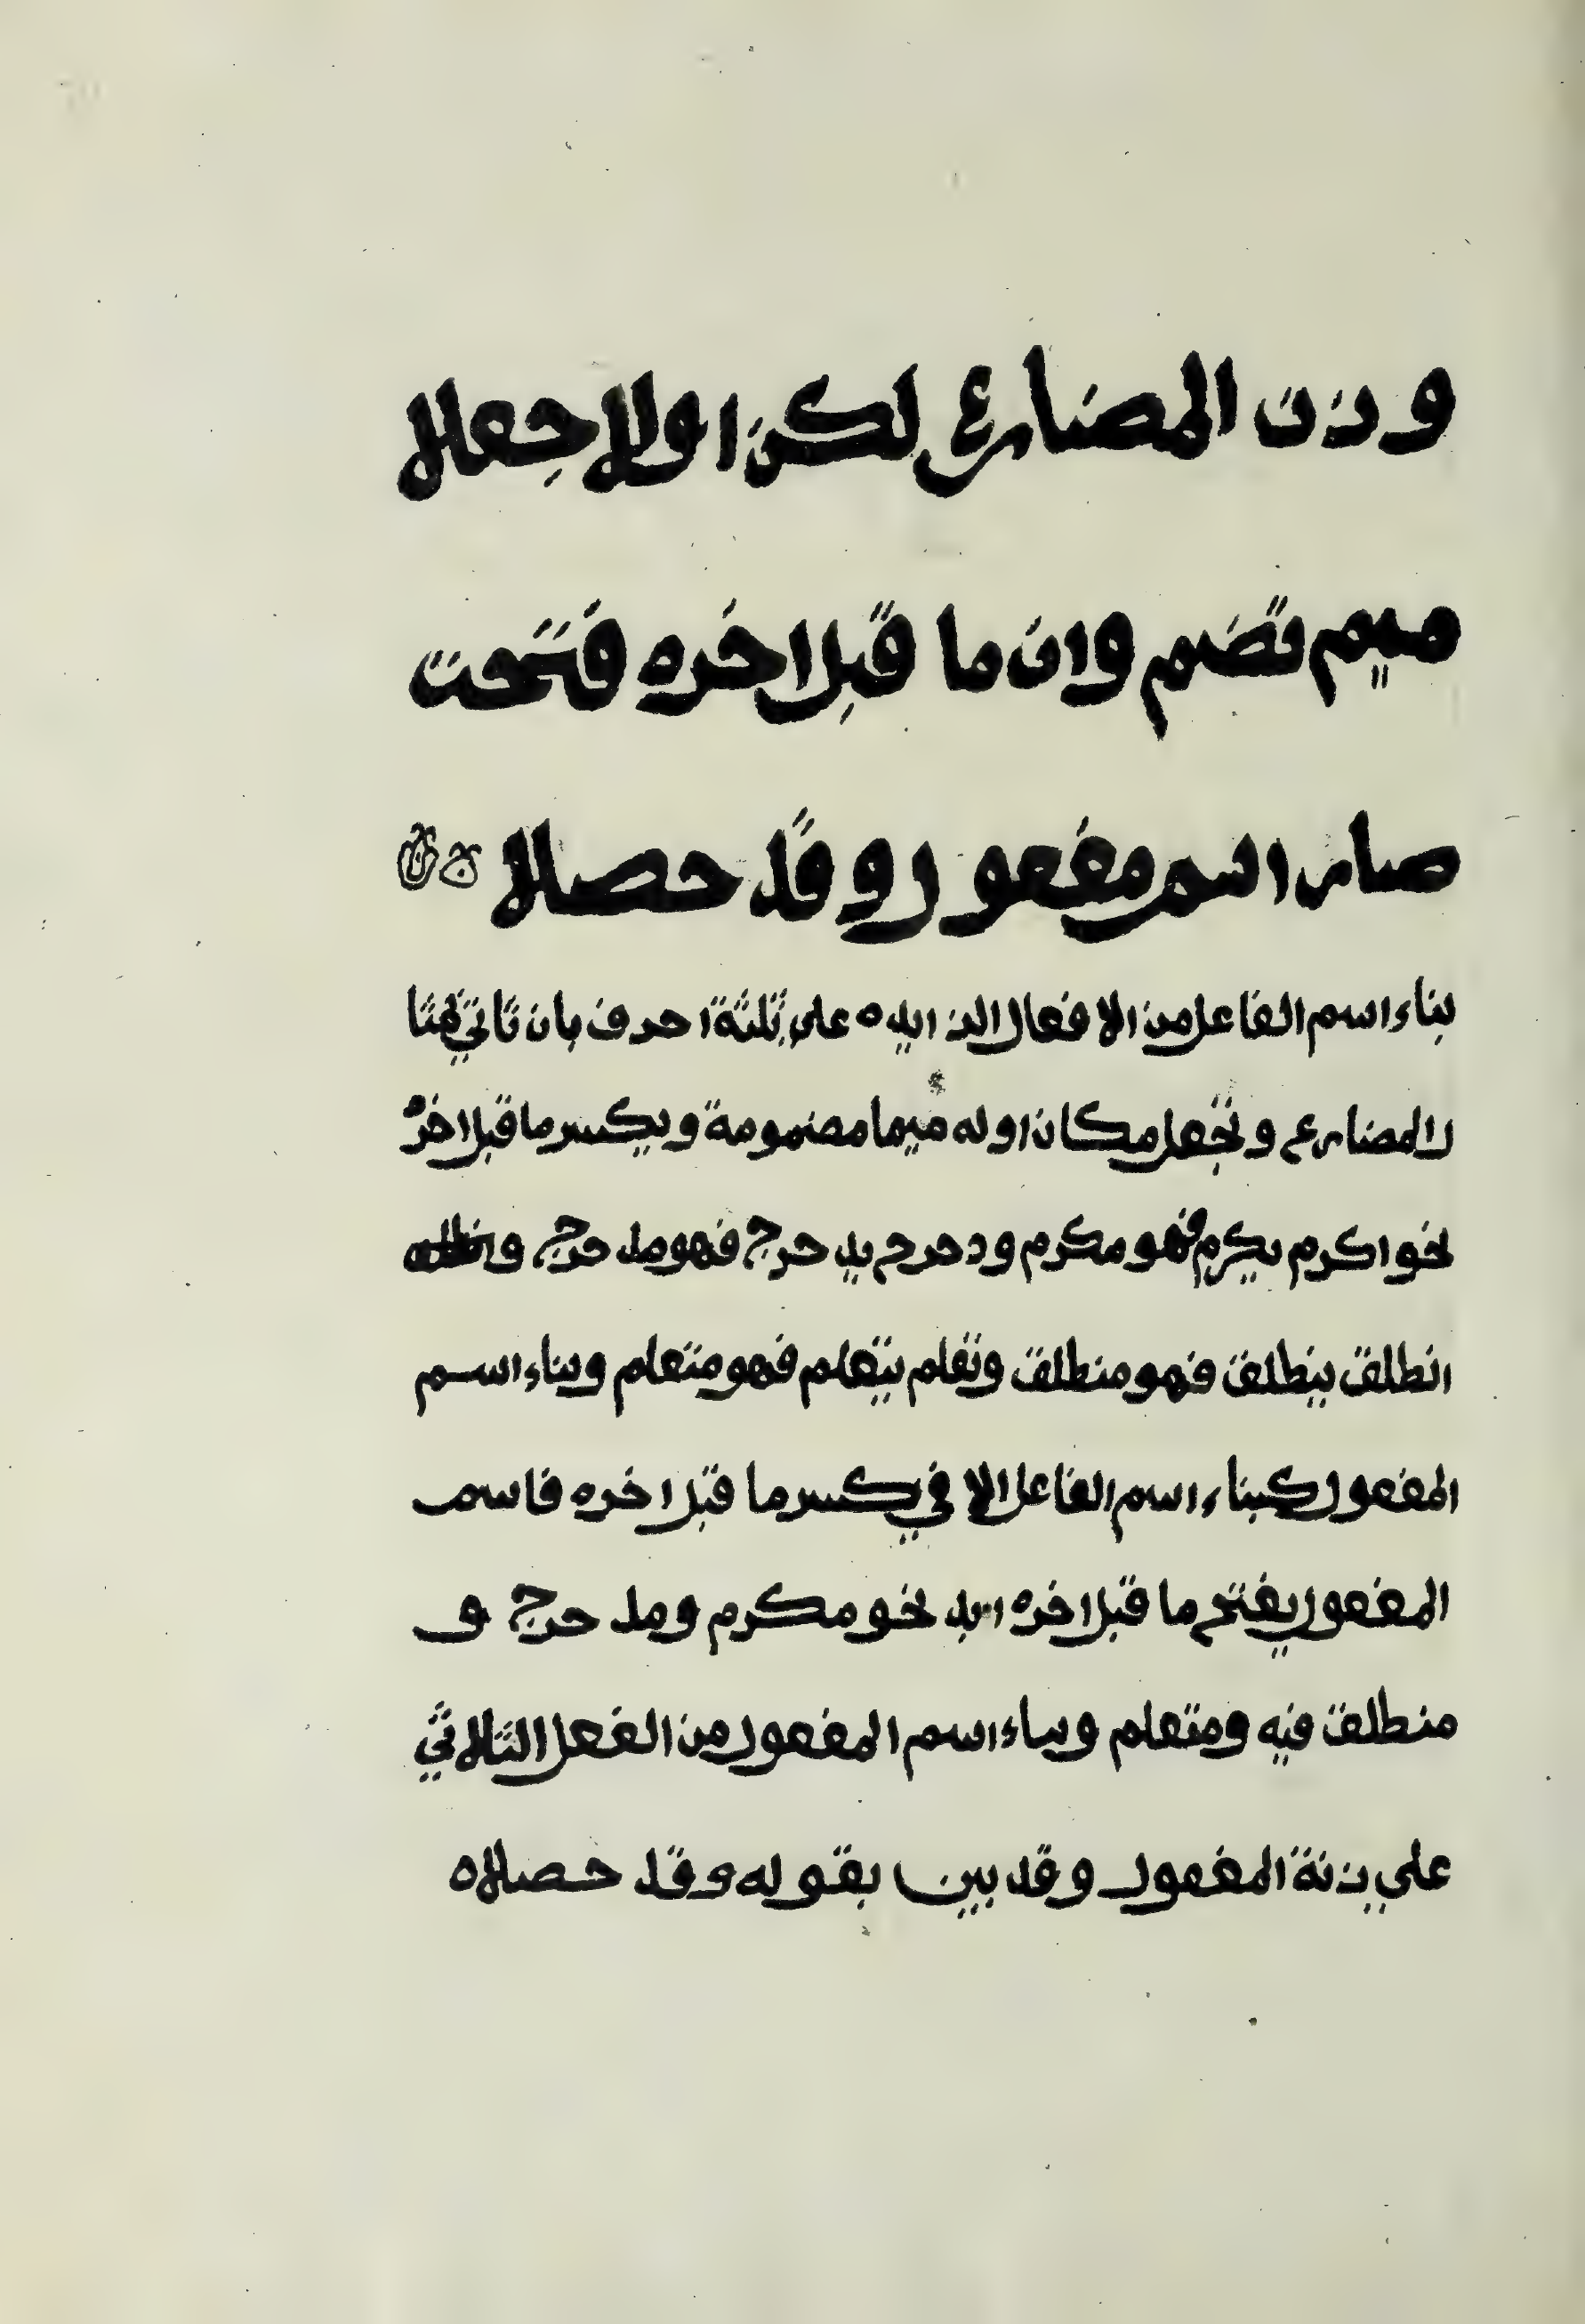 وزن المضارع لكن اولا جعلا
ميم تضم وان ما قبل اخره فتحت
صار اسم مفعول وقد حصلا
بناء اسم الفاعل من الافعال الزايده على ثلثة احرف بان تاتي
المضارع وتجعل مكان اوله ميما مضمومة ويكسر ما قبل اخره
نحو اكرم يكرم فهو مكرم ودحرج يدحرج فهو مدحرج و
انطلق ينطلق فهو منطلق وتعلم يتعلم فهو متعلم وبناء اسم
المفعول كبناء اسم الفاعل الا في كسر ما قبل اخره فاسم
المفعول يفتح ما قبل اخره نحو مكرم ومدحرج و
منطلق فيه ومتعلم وبناء اسم المفعول من الفعل الثلاثي
علي زنة المفعول وقد بين بقوله وقد حصلاه